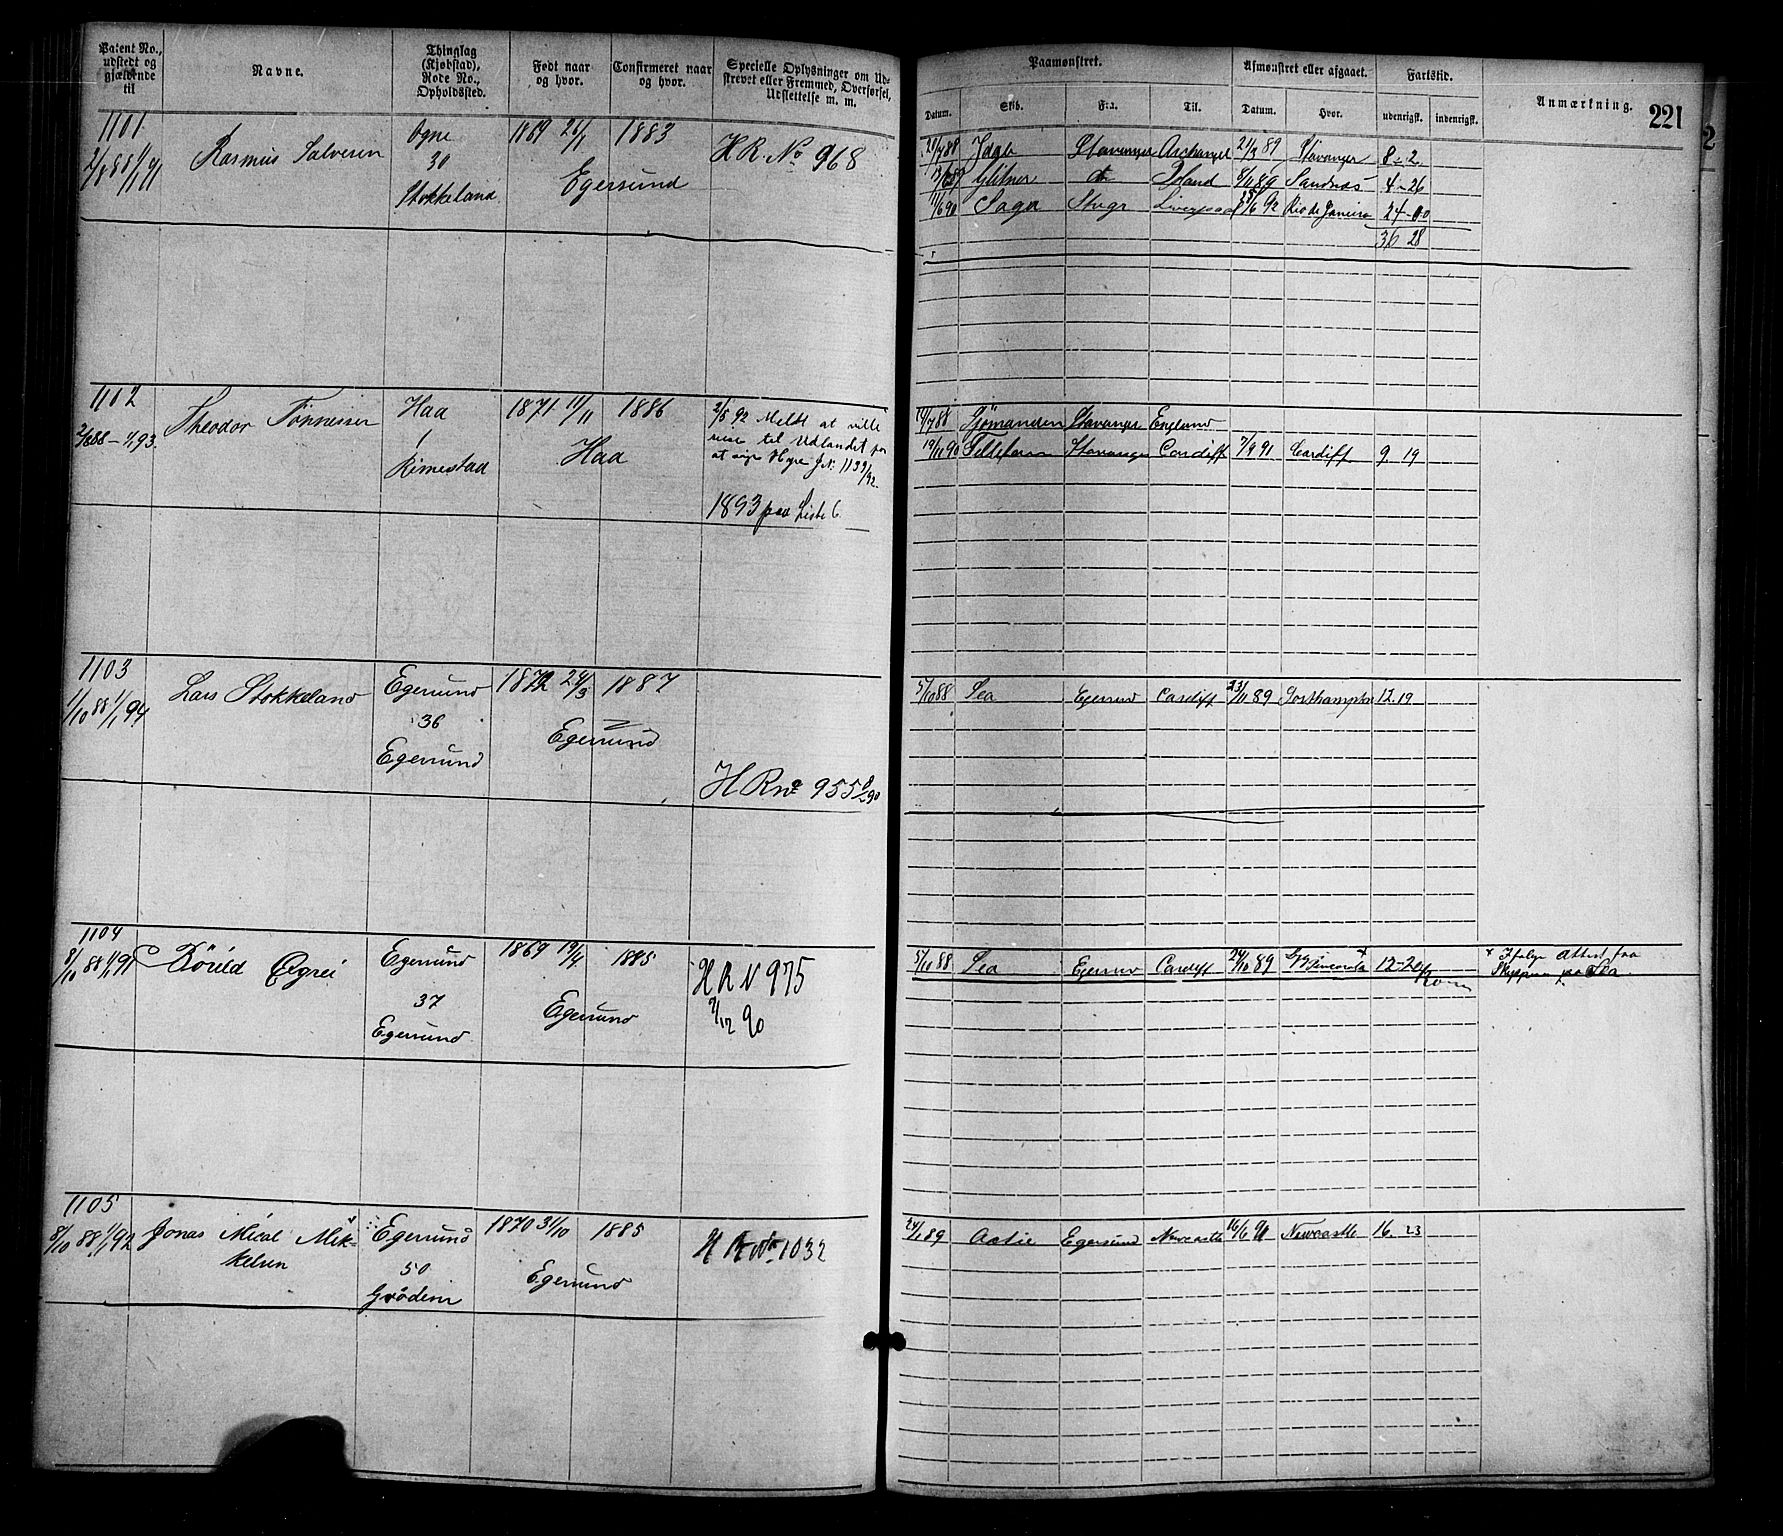 Patent No., udstedt og gjældende til
Navne.
Thinglag (Kjøbstad), Rode No., Opholdssted.
Født naar og hvor.
Confirmeret naar og hvor.
Specielle Oplysninger om Udskrevet eller Fremmed, Overførsel, Udslettelse m. m.
Paamønstret.
Afmønstret eller afgaaet.
Fartstid.
Anmærkning.
221
Datum.
Skib.
Fra.
Til.
Datum.
Hvor.
udenrigsk.
indenrigsk.
1101
2/8 88 1/1 91
Rasmus Salvesen
Ogne
30
Stokkeland
1869
1883
Egersund
H R. No 968
Stavanger Archangel 21/3 89 Stavanger 8 - 2
8/11 89 Sandnæs 4 - 26
11/6 90 Saga Liverpool 92 Rio de Janeiro 24 - 00
36 28
1102
2/8 88 - 1/1 93
Theodor Tønnessen
Haa
1
Rimestad
1871 11/11 1886
Haa
2/8 92 Meldt at ville
reise til Udlandet for
at søge Hyre J.N. 1139/92.
1893 paa Liste C
Stavanger England
19/11 90 Stavanger Cardiff 7/9 91 Cardiff 9 19
1103
1/10 88 1/1 94
Lars Stokkeland
Egersund
36
Egersund
1872 24/3 1887
Egersund
H R no 955
5/10 88 Lea Egersund Cardiff 23/11 89 12.19
1104
8/10 88 1/1 91
Egersund
37
Egersund
1869 19/4 1885
Egersund
H R N 975
90
5/10 88 Lea Egersund Cardiff 24/10 89 12-20
× Ifølge Attest fra
Skipperen paa Lea
1105
8/10 88 1/1 92
Jonas Mical Mik-
kelsen
Egersund
50
Grødem
1870 31/10 1885
Egersund
H R No 1032
24/1 89 Egersund Newcastle 16/6 90 Newcastle 16. 23
2